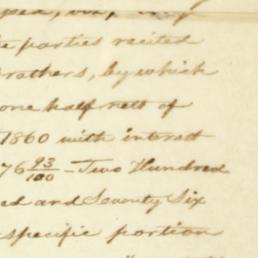 parties recited
rothers, by which
one half nett of
1860 with interest
76 93/100 - Two Hundred
ed and Seventy Six
specific portion